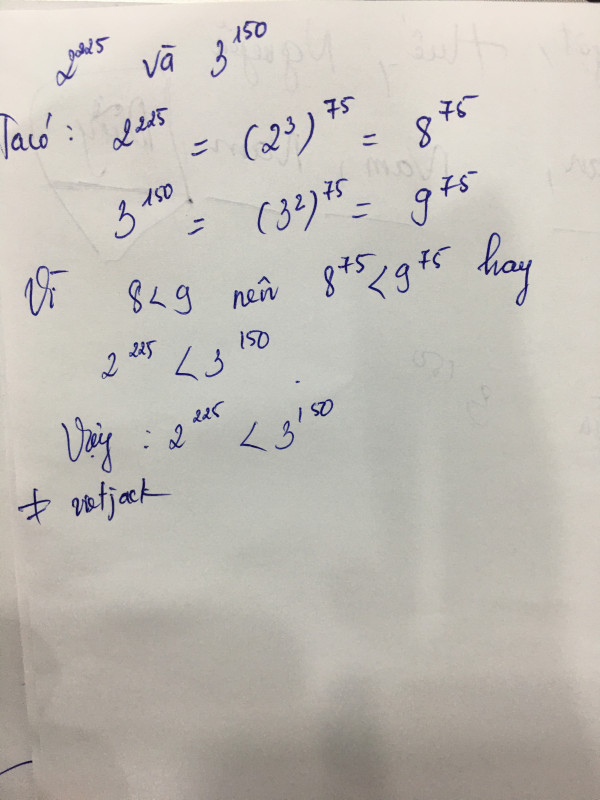 2²²⁵ và 3¹⁵⁰
Ta có : 2²²⁵ = (2³)⁷⁵ = 8⁷⁵
3¹⁵⁰ = (3²)⁷⁵ = 9⁷⁵
Vì 8 < 9 nên 8⁷⁵ < 9⁷⁵ hay
2²²⁵ < 3¹⁵⁰
Vậy : 2²²⁵ < 3¹⁵⁰
# vietjack